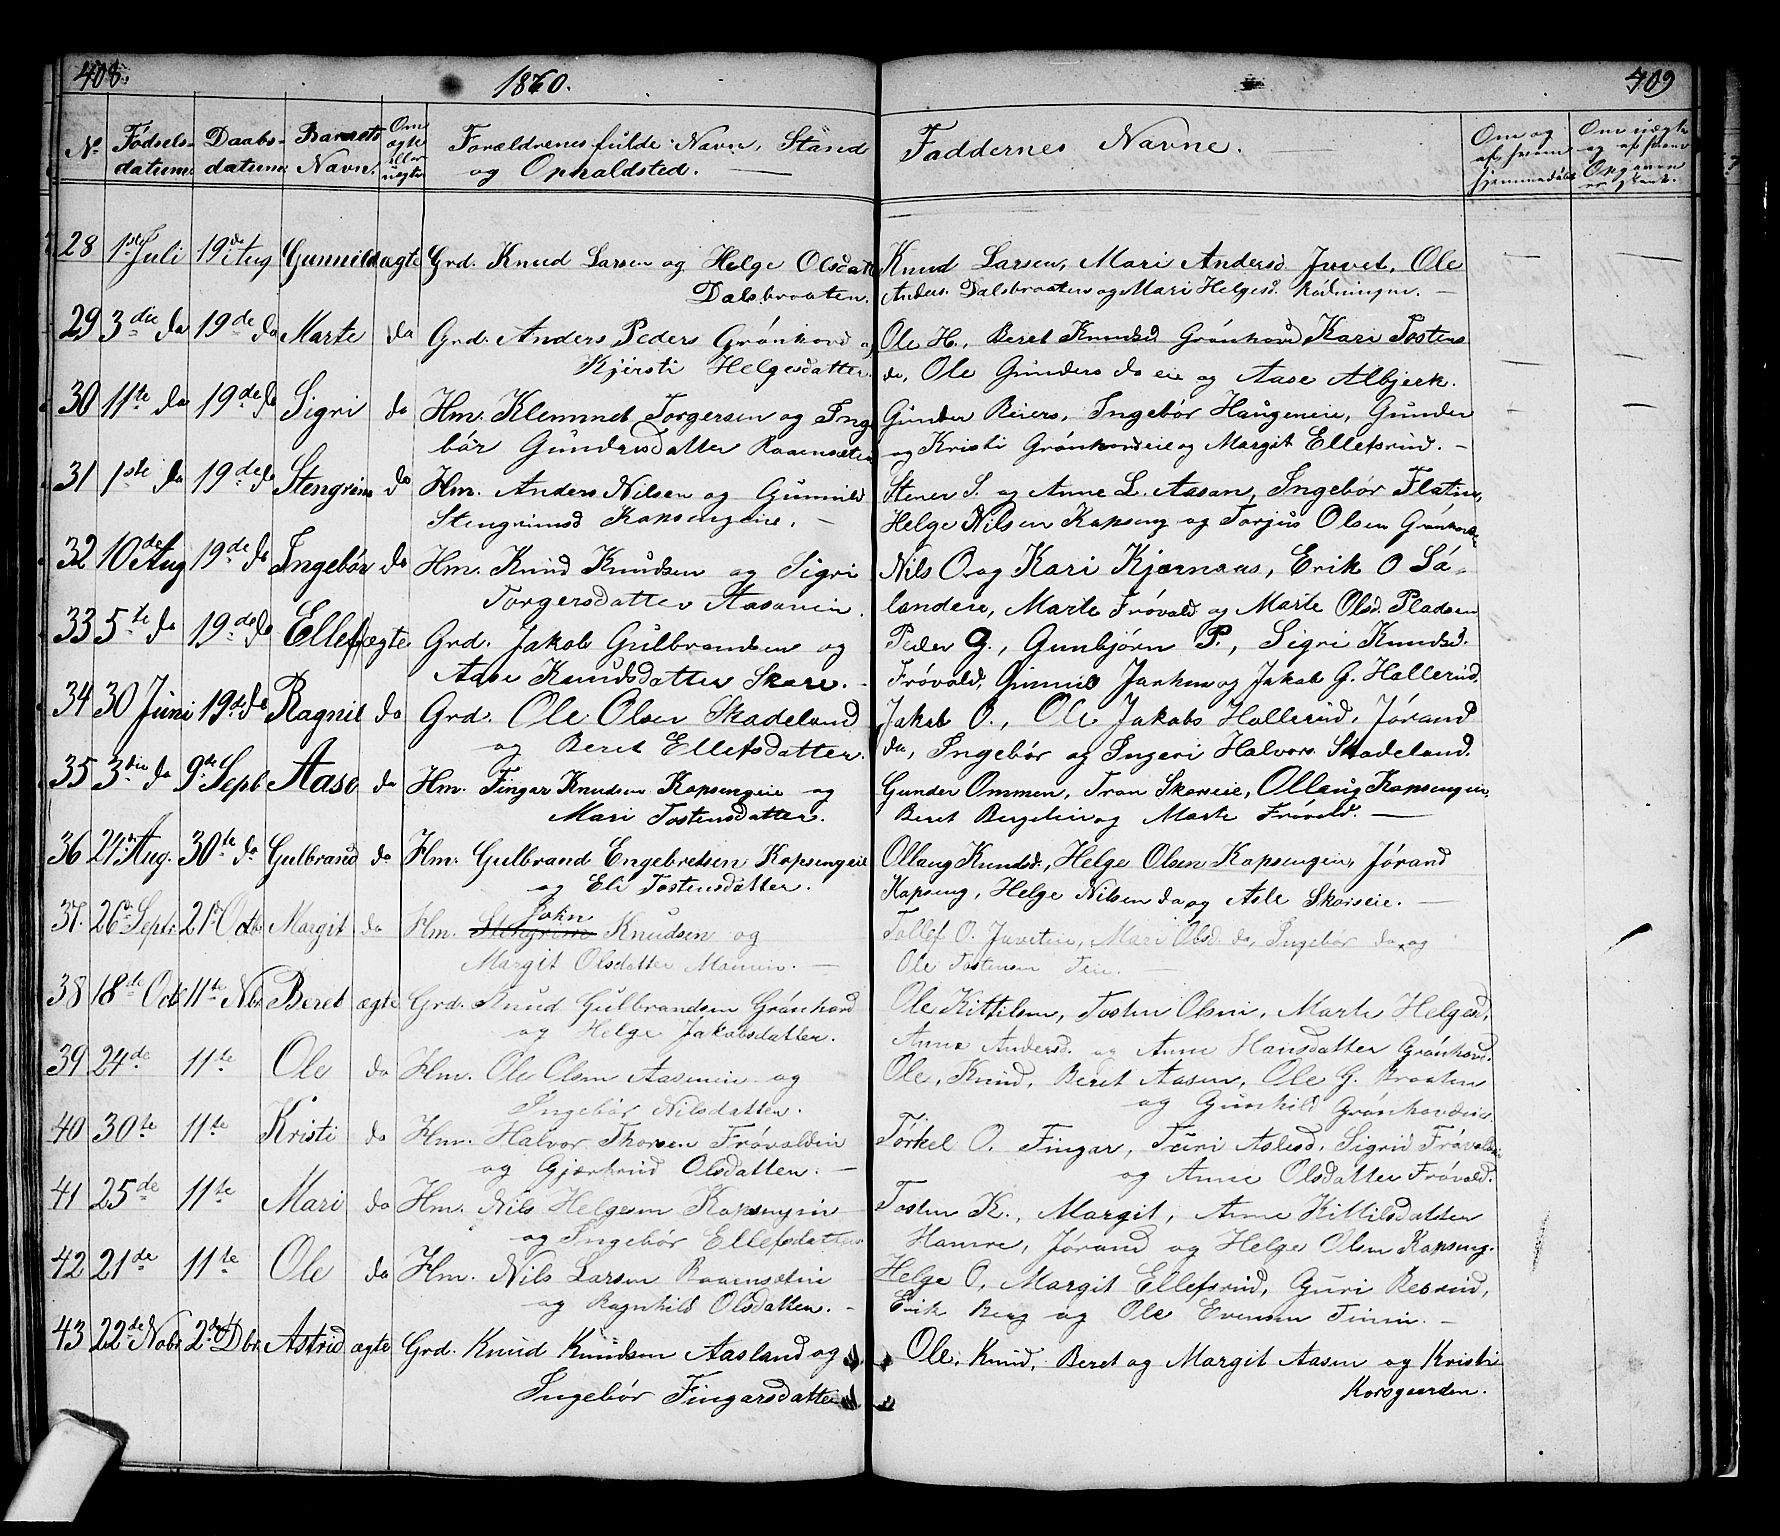 408.
1860.
409
No Fødsels-datum. Daabs-datum Barnets Navn. Om ægte eller uægte Forældrenes fulde Navn, Stand og Opholdsted.
Faddernes Navne.
28 1ste Juli 19de Aug Gunnild ægte Grd. Knud Larsen og Helge Olsdatt
Dalsbraaten.
Knud Larsen, Mari Andersd. Juvet, Ole
Anders. Dalsbraaten og Mari Helgesd. Rødningen.
29 3die do 19de do Marte do Grd. Anders Peders Grønhovd og
Kjersti Helgesdatter.
Ole H., Beret Knudsd Grønhovd Kari Tostens
do, Ole Gunders do eie og Aase Albjerk.
30 11te do 19de do Sigri do Hm. Klemmet Torgersen og Ing
bør Gundersdatter Roaensæter
Gunder Reiers, Ingebør Haugeneie, Gunder
og Kristi Grønhovdeie og Margit Ellefsrud.
31 1ste do 19de do Stengrim do Hm. Anders Nilsen og Gunnild
Stengrimsd Kapsengeie.
Stener S. og Anne L. Aasan, Ingebør Flatin,
Helge Nilsen Kapseng og Torjus Olsen Grønhovd
32 10de Aug 19de do Ingebør do Hm. Knud Knudsen og Sigri
Torgersdatter Aasanein.
Nils O. og Kari Kjærnaas, Erik O Lø-
landere, Marte Frøvold og Marte Olsd. Pladsen
33 5te do 19de do Ellef ægte Grd. Jakob Gulbrandsen og
Aase Knudsdatter Skare.
Peder G., Gunbjørn P., Sigri Knudsd.
Frøvold, Jakob G. Hallerud.
34 30 Juni 19de do Ragnil do Grd. Ole Olsen Skadeland
og Beret Ellefsdatter.
Jakob O., Ole Jakobs Hallerud, Jørand
do, Ingebør og Ingeri Halvors. Skadeland.
35 3die do 9de Septb. Aase do Hm. Fingar Knudsen Kapsengeie og
Mari Tostensdatter.
Gunder Ommen, Tron Skareeie, Ollaug Kapsengein,
Beret Bergelien og Marte Frøvold.
36 21de Aug. 30te do Gulbrand do Hm. Gulbrand Engebretsen Kapsengeie
og Eli Tostensdatter.
Ollaug Knudsd., Helge Olsen Kapsengein, Jørand
Kapseng, Helge Nilsen do og Asle Skareeie.
37. 26de Septr. 21de Octbr. Margit do Hm. Stengrim John Knudsen og
Margit Olsdatter Moenein.
Tollef O. Juveteie, Mari Olsd. do, Ingebør do og
Ole Tostensen Teie.
38 18de Octb. 11te Nbr. Beret ægte Grd. Knud Gulbrandsen Grønhovd
og Helge Jakobsdatter.
Ole Kittilsen, Tosten Olsen, Marte Helgesd,
Anne Andersd. og Anne Hansdatter Grønhovd.
39 24de 11te Ole do Hm. Ole Olsen Aaseneie og
Ingebør Nilsdatter.
Ole, Knud, Beret Aasen, Ole G. Braaten
og Gunhild Grønhovdeie
40 30te 11te Kristi do Hm. Halvor Thorsen Frøvoldeie
og Gjærtrud Olsdatter.
Torkel O. Fingar, Turi Aslesd, Sigrid Frøvoldei
og Anne Olsdatter Frøvold.
41 25de 11te Mari do Hm. Nils Helgesen Kapsengein
og Ingebør Ellefsdatter
Tosten K., Margit, Anne Kittilsdatter
Hamre, Jørand og Helge Olsen Kapseng.
42 21de 11te Ole do Hm. Nils Larsen Roaensætein
og Ragnhild Olsdatter.
Helge O, Margit Ellefsrud, Guri Resrud,
Erik Berg og Ole Evensen Tinin.
43 22de Nobr. 2den Dbr. Astrid ægte Grd. Knud Knudsen Aasland og
Ingebør Fingarsdatter
Ole, Knud, Beret og Margit Aasen og Kristi
Korsgaarden.